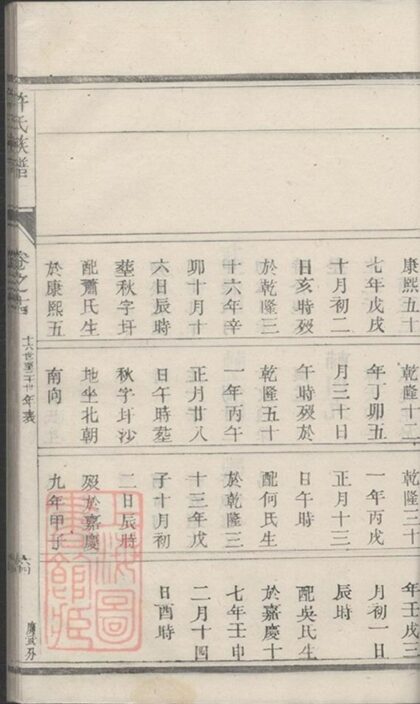 康熙五十
七年戊戌
十月初二
日亥時歿
於乾隆三
十六年辛
卯十月十
六日辰時
塟秋字圩
配蕭氏生
於康熙五
乾隆十二
年丁卯五
月三十日
午時歿於
乾隆五十
一年丙午
正月廿八
日午時塟
秋字圩沙
地坐北朝
南向
乾隆三十
一年丙戌
正月十三
日午時
配何氏生
於乾隆三
十三年戊
子十月初
二日辰時
歿於嘉慶
九年甲子
年壬戌三
月初一日
辰時
配吳氏生
於嘉慶十
七年壬申
二月十四
日酉時
許氏族譜
卷之十
年表
上海圖
書館藏